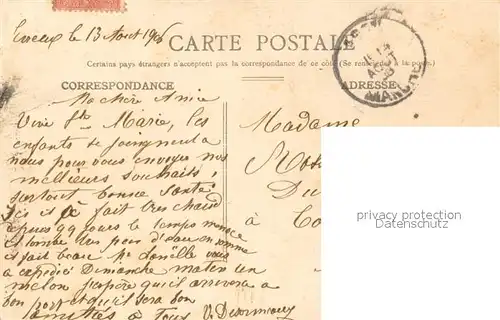 Evreux le 13 Aout 1906
CARTE POSTALE
Certains pays étrangers n'acceptent pas la correspondance de ce côté (Se renseigner à la poste).
CORRESPONDANCE
ADRESSE
Ma chère Amie
Vive Ste Marie, les
enfants se joignent a
nous pour vous envoyer nos
meilleurs souhaits,
surtout bonne santé
Ici il fait très chaud
depuis jours le temps menace
et tombe un peu d'eau en somme
il fait beau Me vous
a expedié Dimanche matin un
melon j'espère qu'il arrivera a
bon port et qu'il sera bon
amitiés à Tous V. Desormeaux
Madame
à
privacy protection
Datenschutz